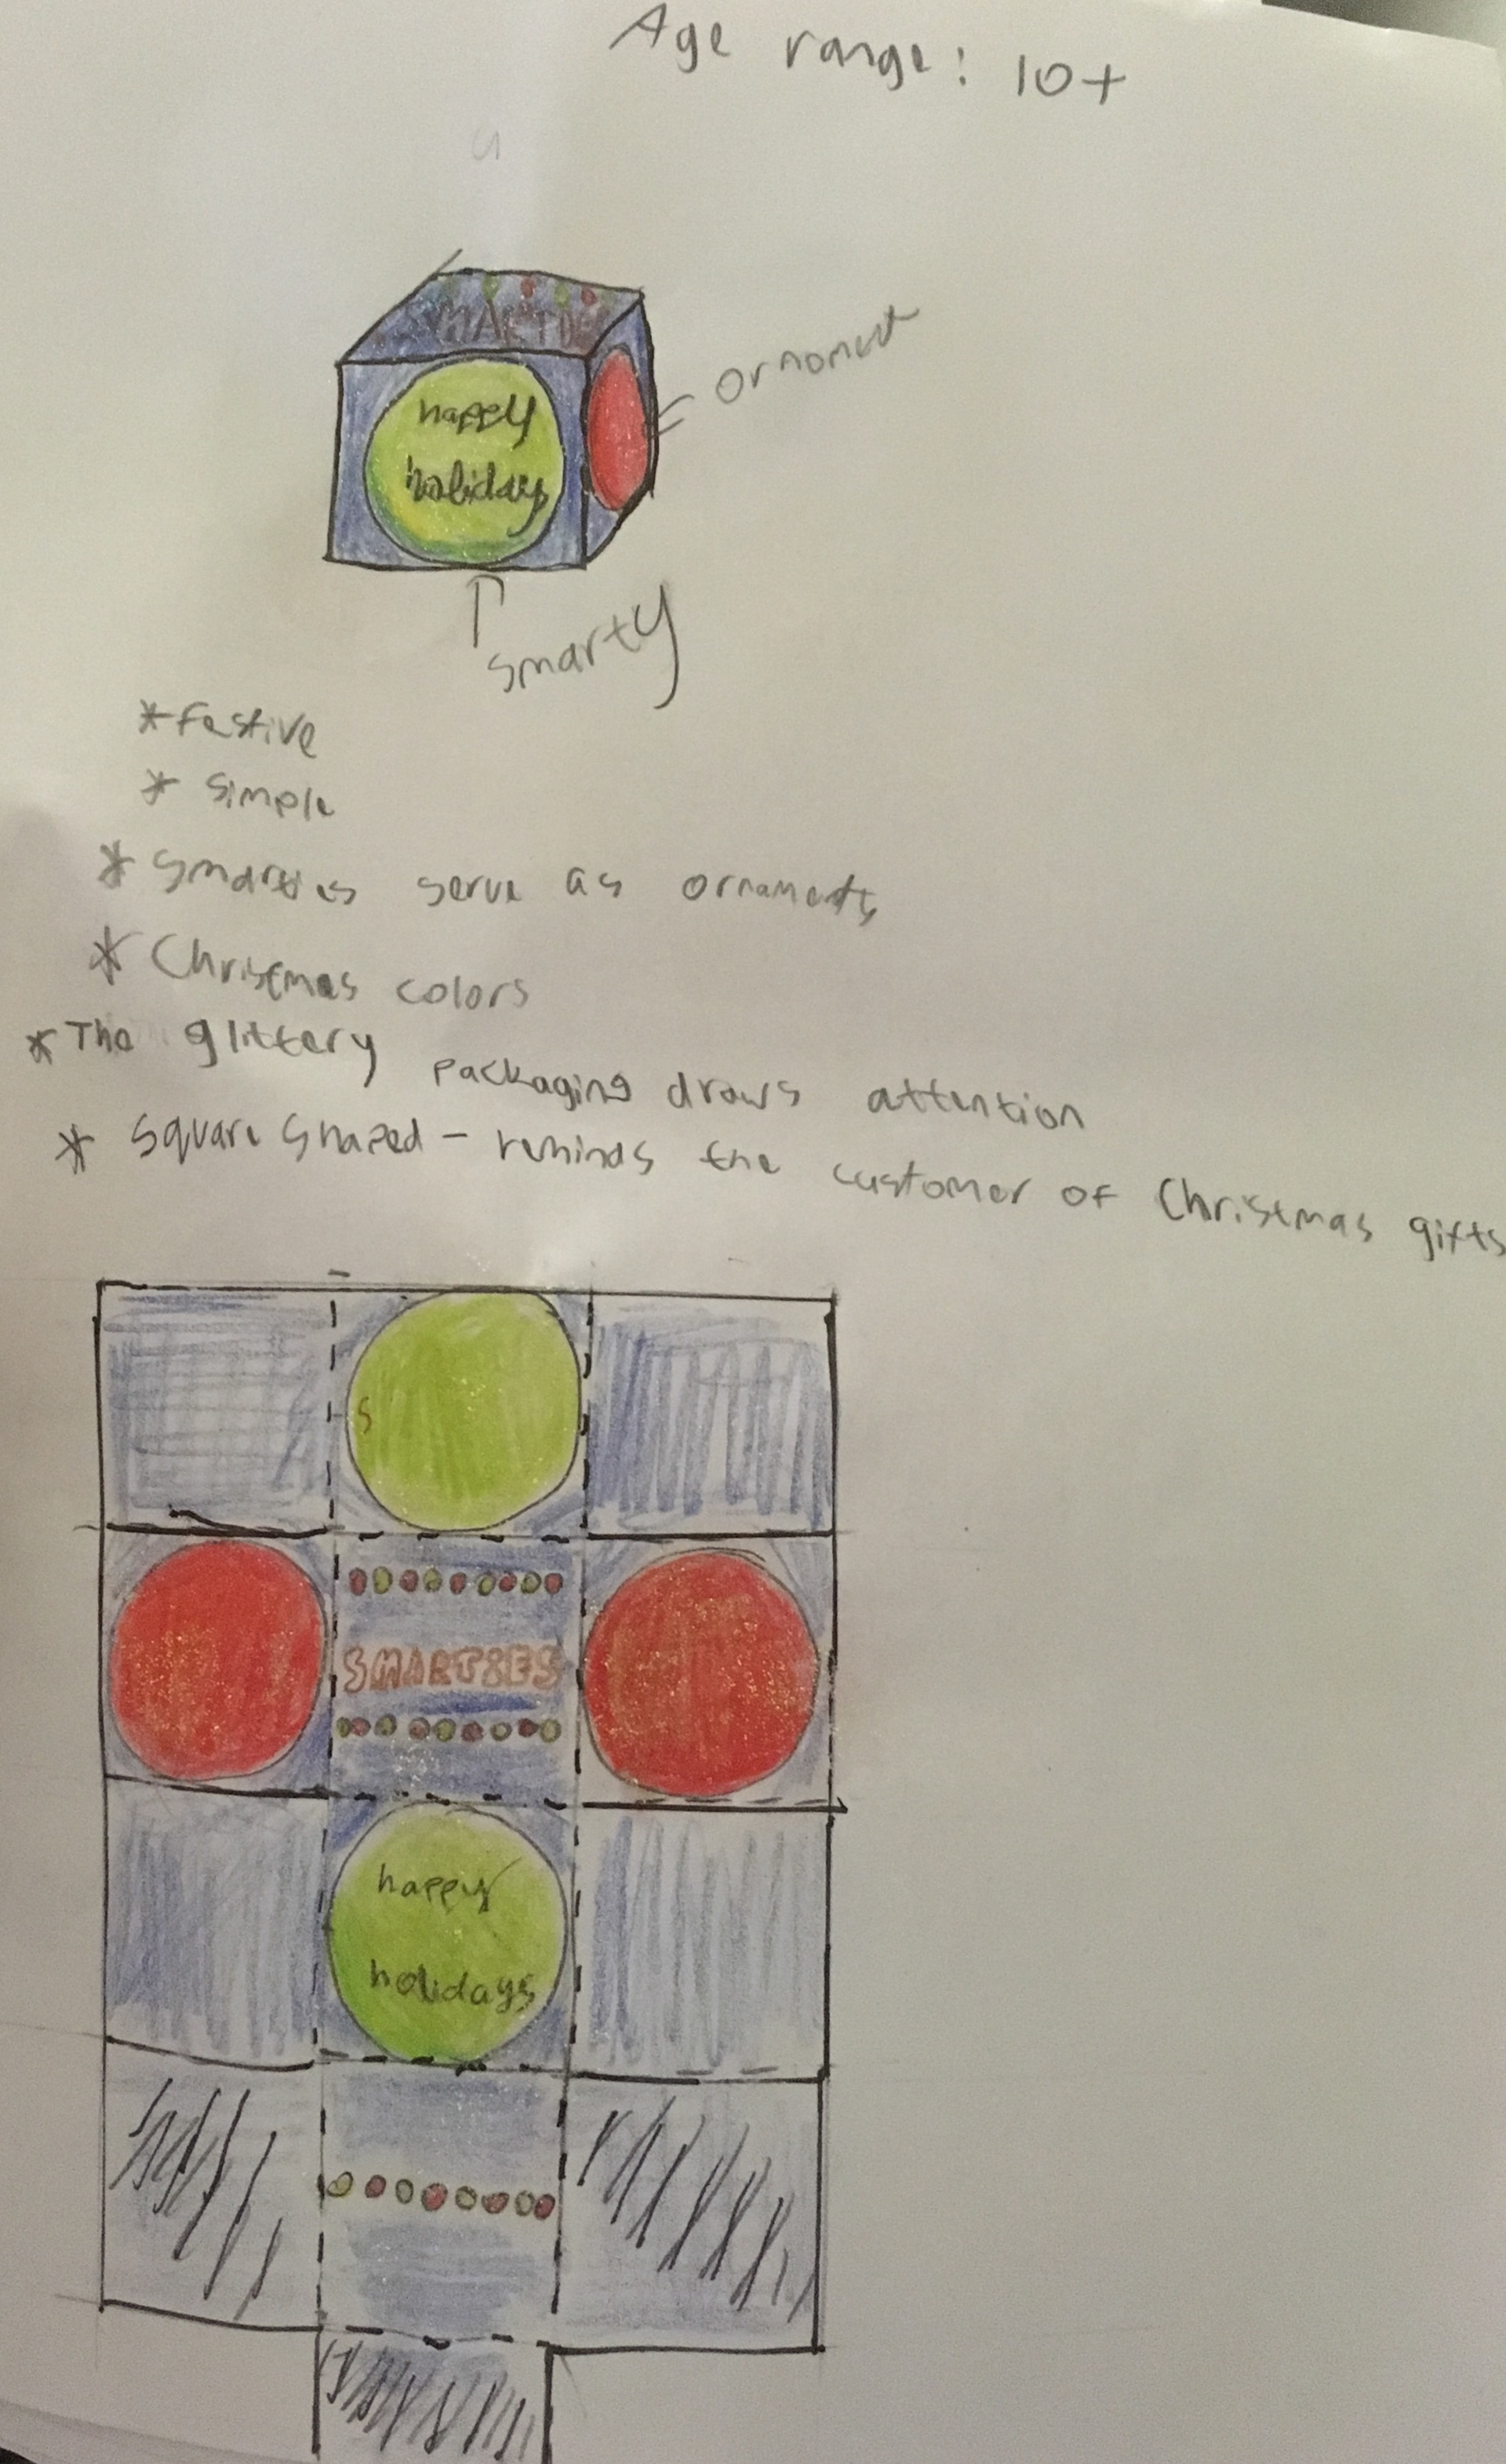 Age range: 10+
SMARTIES
happy
holidays
ornoment
smarty
* Festive
* simple
* Smarties serve as ornaments
* Christmas colors
* The glittery packaging draws attention
* Square shaped - reminds the customer of Christmas gifts
S
SMARTIES
happy
holidays